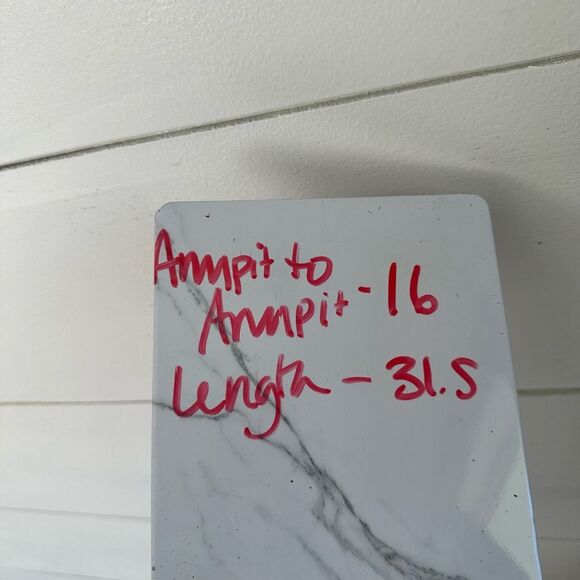 Armpit to
Armpit - 16
Length - 31.5